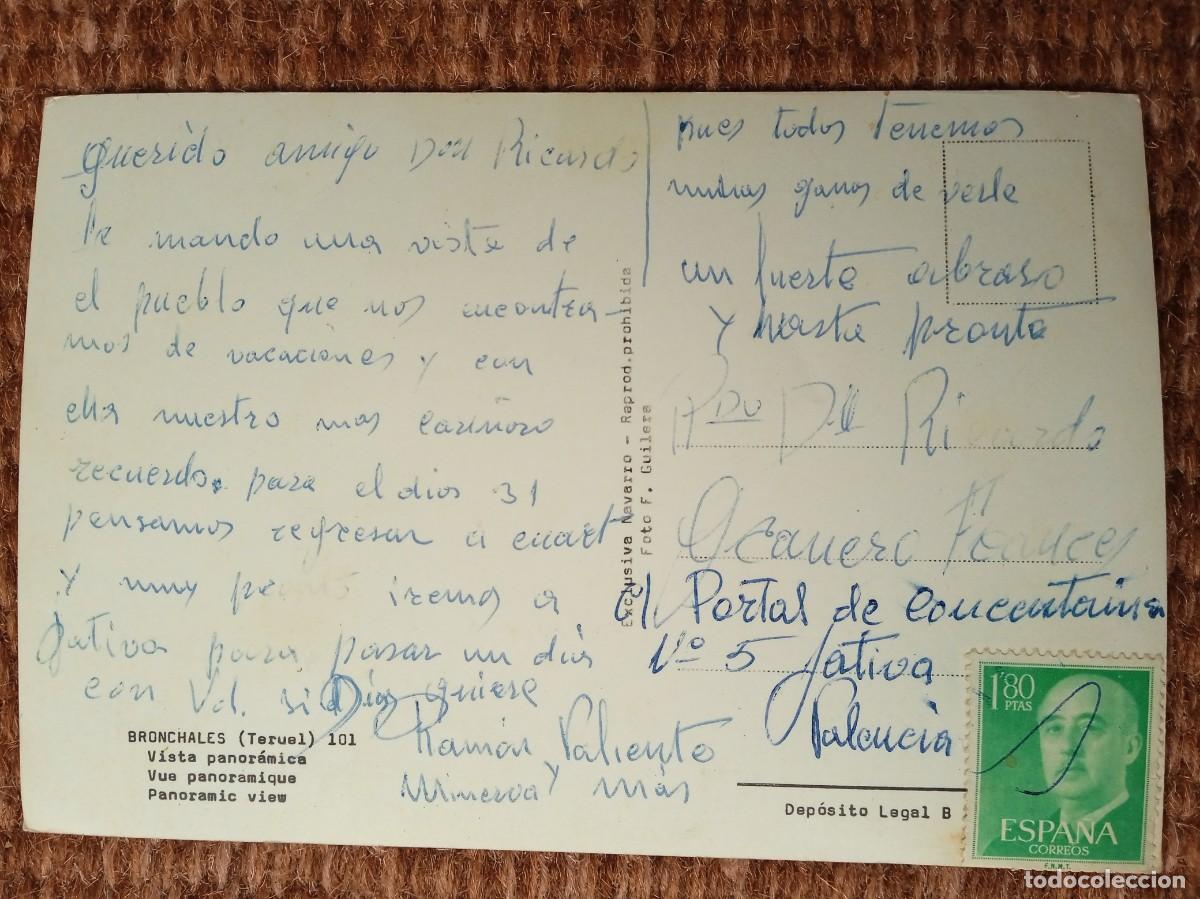 Querido amigo Don Ricardo
le mando una vista de
el pueblo que nos encontra-
mos de vacaciones y con
ella nuestro mas cariñoso
recuerdo. para el dias 31
pensamos regresar a cuart
Y muy pronto iremos a
Jativa para pasar un dias
con Vd. si Dios quiere
Ramón Valiente
Minerva y más
pues todos Tenemos
muchas ganas de verle
un fuerte abraso
Y hasta pronto
Rdo Dn Ricardo
Frances
C/ Portal de Concentaina
Nº 5 Jativa
Valencia
BRONCHALES (Teruel) 101
Vista panorámica
Vue panoramique
Panoramic view
Exclusiva Navarro - Raprod. prohibida
Foto F. Guilera
Depósito Legal B
1'80
PTAS
ESPAÑA
CORREOS
F.N.M.T.
todocoleccion